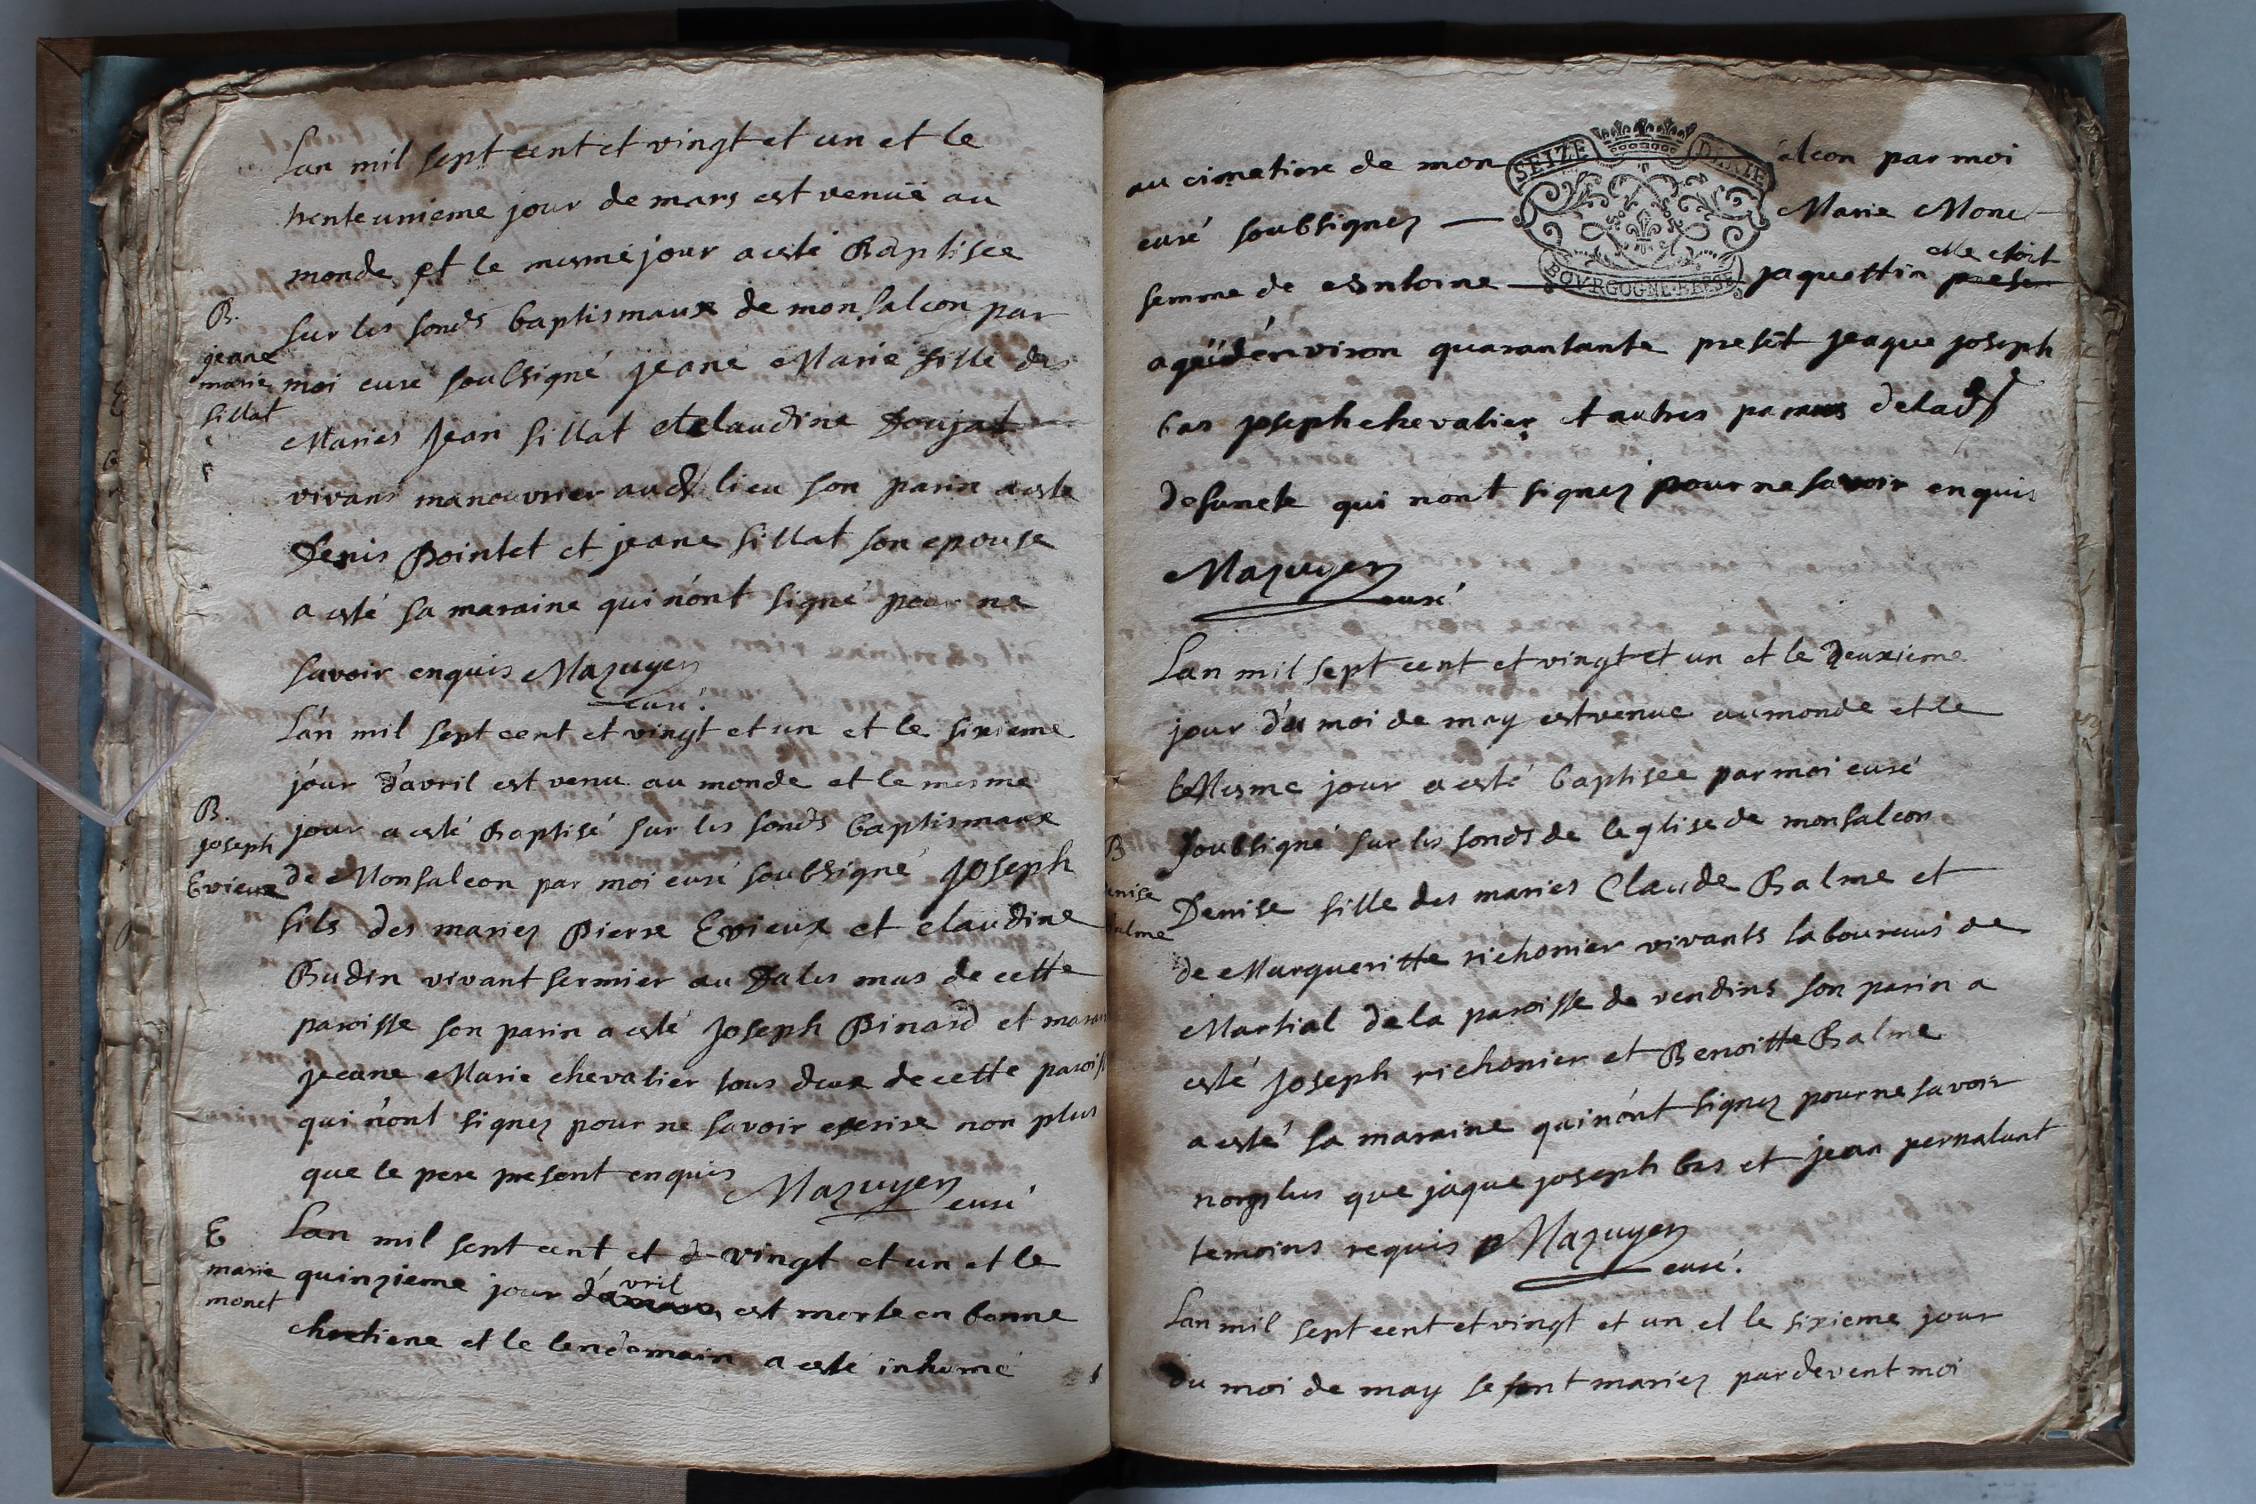 Lan mil sept cent et vingt et un et le
trenteunieme jour de mars est venuë au
monde et le mesme jour a esté Baptisee
B.
sur les fonds baptismaux de monfalcon par
jeane
marie
fillat
moi curé soubsigné jeane Marie fille des
Maries Jean fillat et claudine Doujat
vivans manouvrier audt lieu son parin a este
Denis Pointet et jeane fillat son epouse
a esté sa maraine qui n'ont signé pour ne
savoir enquis Mazuyer
curé.
L'an mil sept cent et vingt et un et le sixieme
jour d'avril est venu au monde et le mesme
B.
joseph
Evieux
jour a esté Baptisé sur les fonds baptismaux
de Monfalcon par moi curé soubsigné Joseph
fils des mariez Pierre Evieux et claudine
Budin vivant fermier au mas de cette
paroisse son parin a esté Joseph Pinard et
jeane Marie chevalier tous deux de cette
qui n'ont signez pour ne savoir escrire non plus
que le pere present enquis Mazuyer
curé
E
marie
monet
Lan mil sept cent et vingt et un et le
quinzieme jour d'avril est morte en bonne
chretiene et le lendemain a esté inhumé
au cimetiere de mon SEIZE DENIE alcon par moi
curé soubsignez Marie Monet
elle etoit
femme de Antoine BOURGOGNE BRESSE jaquettin
ageë d'environ quarantante presêt jeaque joseph
bas joseph chevalier et autres parans de ladt
defuncte qui nont signez pour ne savoir enquis
Mazuyer
curé
Lan mil sept cent et vingt et un et le deuxieme
jour du moi de may est venue au monde et le
Mesme jour a esté baptisee par moi curé
B
enise
alme
soubsigné sur les fonds de leglise de monfalcon
Denise fille des maries Claude Balme et
de Margueritte richonier vivants laboureurs de
Martial de la paroisse de vendins son parin a
esté Joseph richonier et Benoitte Balme
a esté sa maraine qui n'ont signez pour ne savoir
non plus que jaque joseph bas et jean pernalunt
temoins requis Mazuyer
curé.
Lan mil sept cent et vingt et un et le sixieme jour
du moi de may se sont mariez pardevent moi